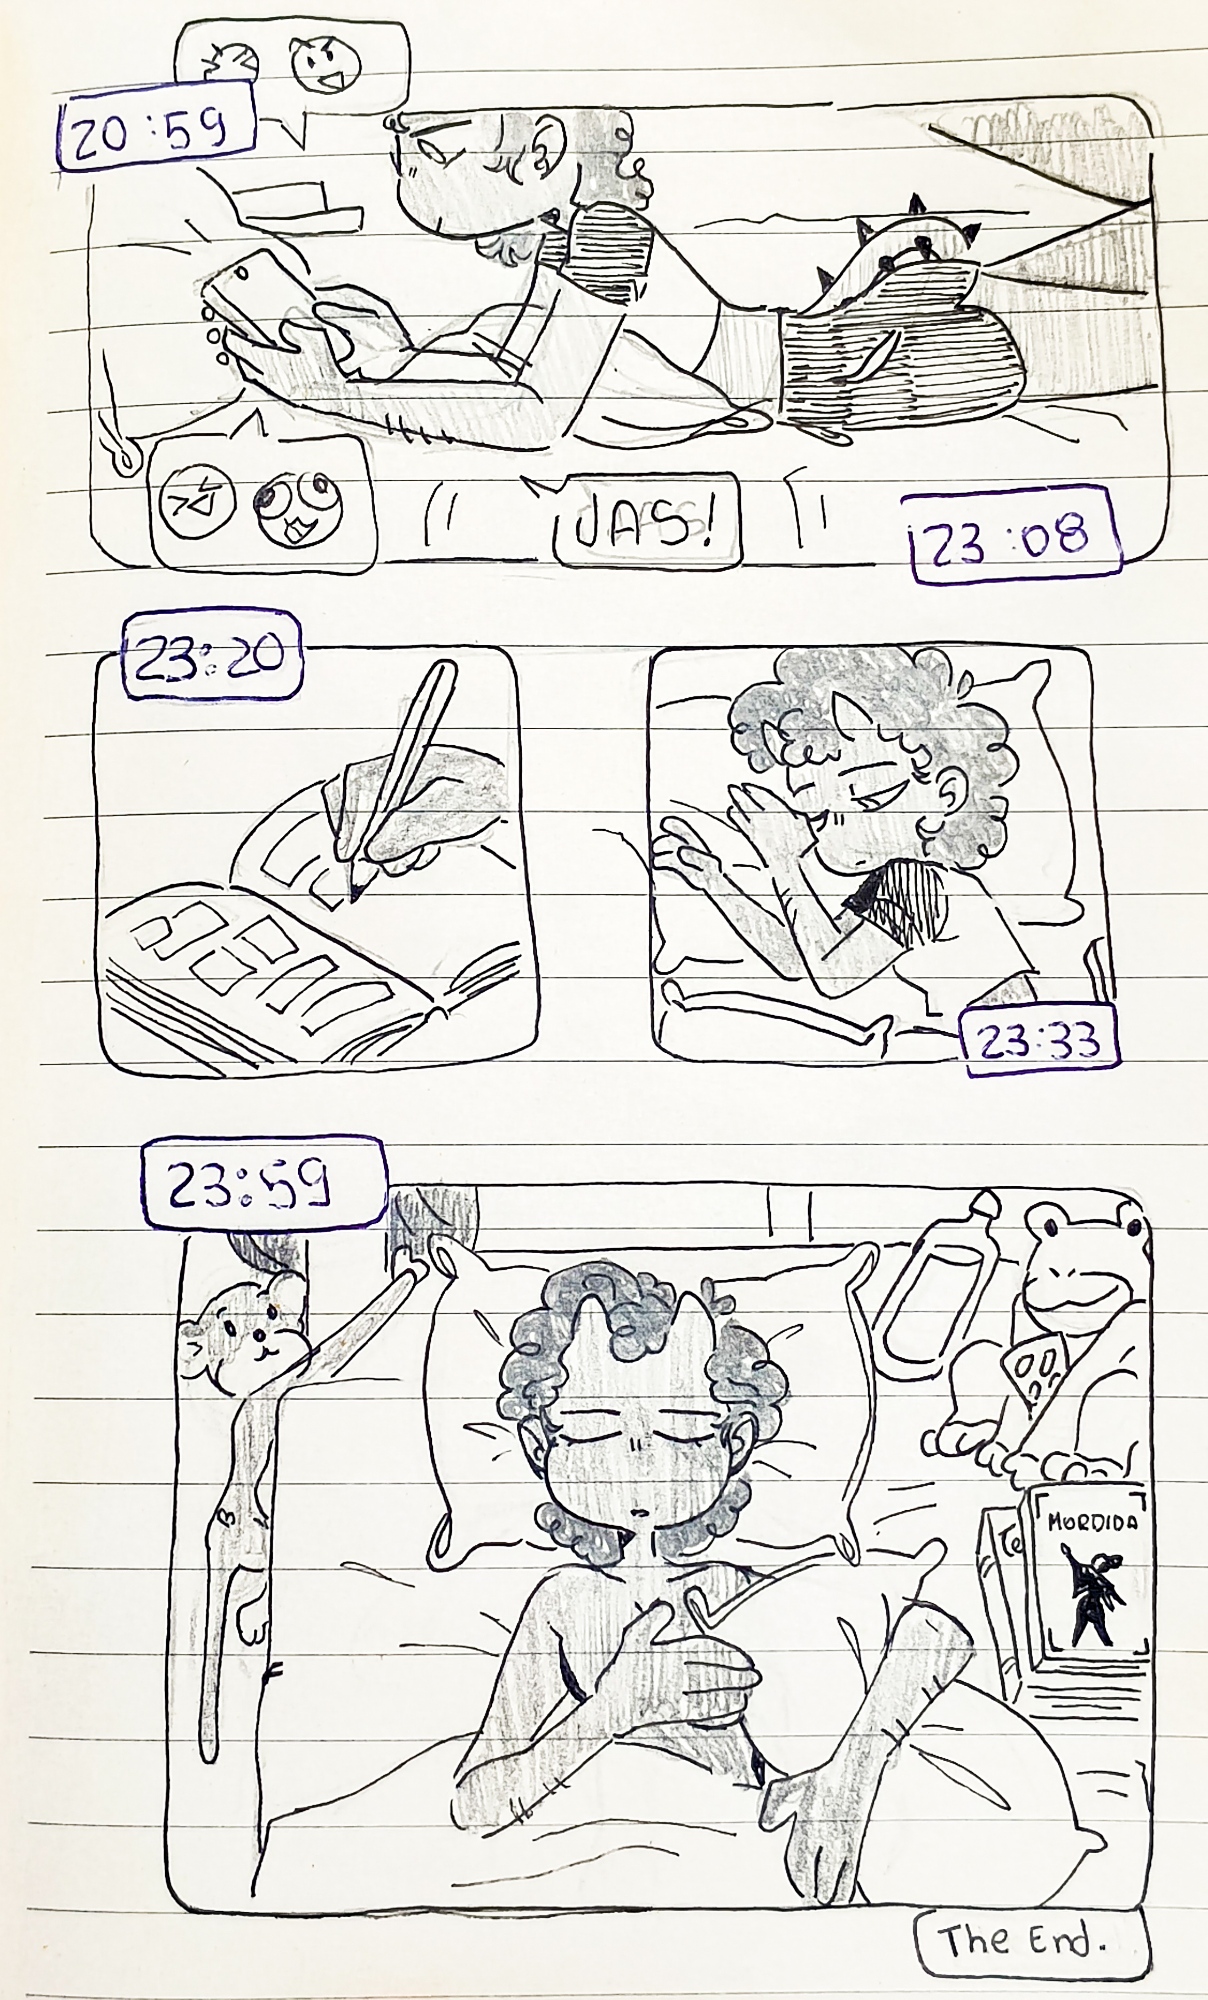 20:59
JAS!
23:08
23:20
23:33
23:59
Te
MORDIDA
The End.